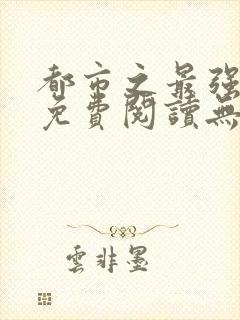 都市之最强
免費閱讀無
雲非墨